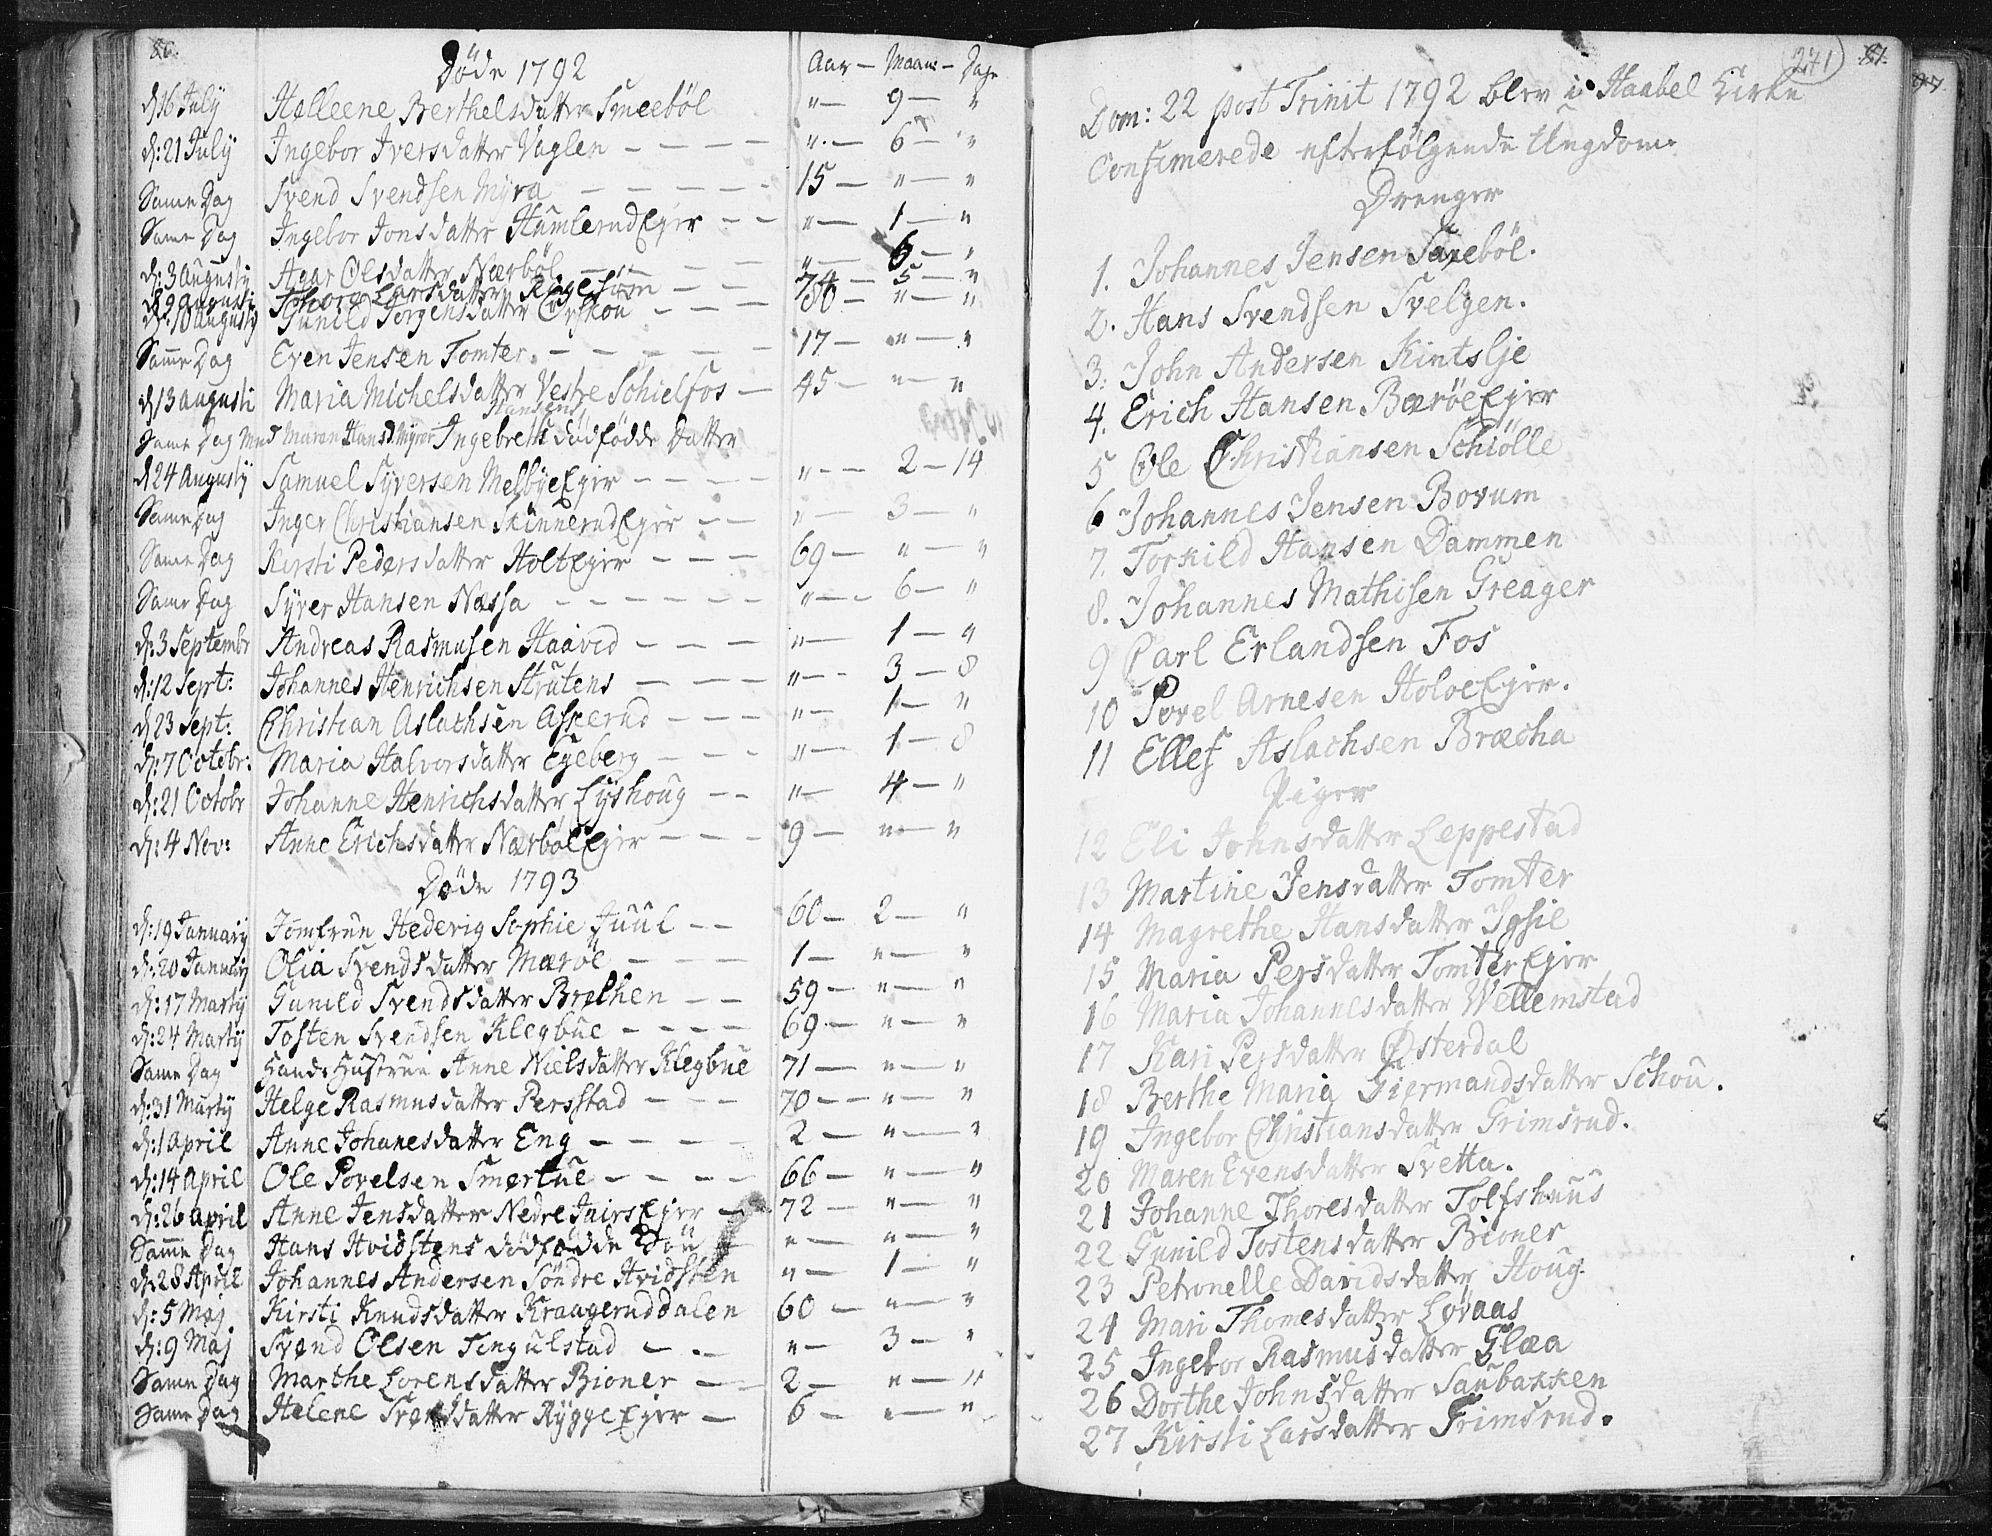 86.
Døde 1792
Aar — Maan: — Dage
d: 16 July Helleene Berthelsdatter Smeebøl " — 9 — "
d: 21 July Ingebor Iversdatter Vaglen — — — — " — 6 "
Samme Dag Svend Svendsen Myra — — — — — 15 — " — "
Samme Dag Ingebor Jonsdatter HumlerudEjer — — " — 1 — "
d: 3 augusty Agar Olsdatter Nærbøl — — — " — 6 — "
d: 9 augusti Larsdatter — — 74 — 5 — "
d: 10 augusty Gunild Jörgensdatter — — 80 — " — "
Samme Dag Even Jensen Tomter. — — — — — 17 — " — "
d: 13 augusti Maria Michelsdatter Vestre Schielfos — 45 — " — "
Samme Dag Maren Ingebrett dødfødde Datter
d 24 Augusty Samuel Syversen MelbyeEjer — — — — " — — 2 — 14
Same Dag Inger Christiansen SkinnerudEjer — — " — 3 — "
Same Dag Kirsti Pedersdatter HoltEjer — — — 69 — " — "
Same Dag Syver Hansen Næssa — — — — — — " — — 6 — "
d: 3 Septembr Andreas Rasmusen Haavid — — — " — 1 — "
d: 12 Sept: Johannes Henrichsen Strutens — — — " — 3 — 8
d 23 Sept: Christian Aslachsen Asperud — — — " — 1 — "
d: 7 Octobr: Maria Halvorsdatter Egeberg — — — " — 1 — 8
d: 21 Octobr Johanne Henrichsdatter Lyshoug — — " — 4 — "
d: 4 Nov: Anne Erichsdatter NærbølEjer — — — 9 — " — "
Døde 1793
d: 19 January Jomfrue Hedevig Sophie Juul — — 60 — 2 — "
d: 20 January Olia Svendsdatter Mærøe — — — 1 — " — "
d: 17 Marty Gunild Svendsdatter Brethen — — 59 — " — "
d: 24 Marty Tosten Svendsen Klegbue — — — — 69 — " — "
Samme Dag Hands Hustrue Anne Nielsdatter Klegbue 71 — " — "
d: 31 Marty Helge Rasmusdatter Persstad — — — 70 — — " — "
d: 1 April Anne Johanesdatter Eng — — — — 2 — " — "
d: 14 April Ole Povelsen Smørtue — — — — 66 — " — "
d: 26 April Anne Jensdatter Nedre Ejer — 72 — " — "
Samme Dag Hans Hvidstens dødfødde Søn — " — " — "
d: 28 April Johannes Andersen Söndre Hvidsten " — 1 — "
d: 5 Maj Kirsti Knudsdatter Kraageruddalen 60 — " — "
d: 9 Maj Svend Olsen Tingulstad — — " — 3 — "
Samme Dag Marthe Lorensdatter Bioner — — 2 — " — "
Samme Dag Helene Svendsdatter RyggeEjer — 6 — " — "
271 81.
Dom: 22 post Trinit 1792 blev i Haabel Kirke
Confirmerede efterfølgende Ungdom.
Drenger
1. Johannes Jensen Saxeböl.
2. Hans Svendsen Svelgen.
3. John Andersen
4. Erich Hansen BærøeEjer
5 Ole Christiansen Schiölle
6 Johannes Jensen Borum
7. Torkild Hansen Dammen
8. Johannes Mathisen Greager
9 Carl Erlandsen Fos
10 Povel Arnesen HoloeEjer.
11 Ellef Aslachsen Bræcha
Piger
12 Eli Johnsdatter Leppestad
13 Martine Jensdatter Tomter
14 Magrethe Hansdatter Igsie
15 Maria Persdatter TomterEjer
16 Maria Johannesdatter Wellemstad
17 Kari Persdatter Østerdal
18 Berthe Maria Giermandsdatter Schou.
19 Ingebor Christiansdatter Grimsrud.
20 Maren Evensdatter Svetta.
21 Johanne Thoresdatter Tolfshuus
22 Gunild Tostensdatter Bioner
23 Petronelle Davidsdatter Houg.
24 Mari Thomesdatter Løvaas
25 Ingebor Rasmusdatter Glæa
26 Dorthe Johnsdatter Saubakken
27 Kirsti Larsdatter Grimsrud.